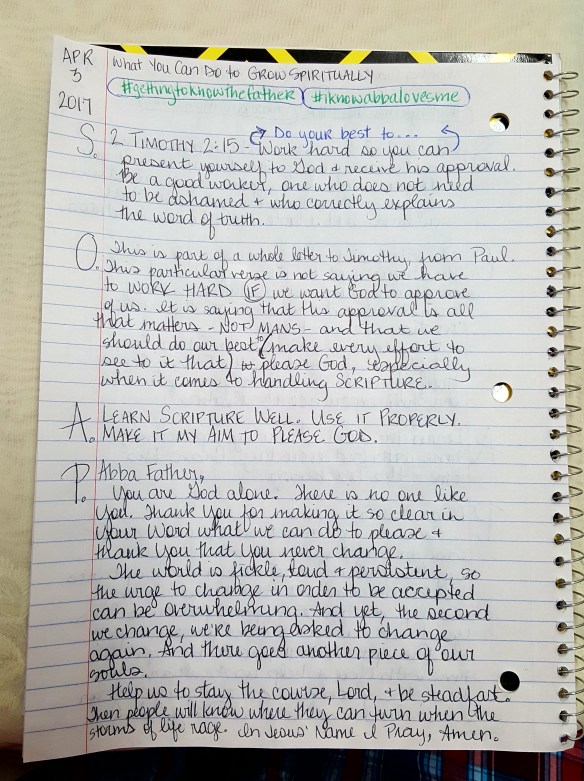 APR 3 2017
What You Can Do to GROW SPIRITUALLY
#gettingtoknowthefather #iknowabbalovesme
Do your best to...
S. 2 TIMOTHY 2:15 - Work hard so you can
present yourself to God & receive his approval.
Be a good worker, one who does not need
to be ashamed & who correctly explains
the word of truth.
O. This is part of a whole letter to Timothy, from Paul.
This particular verse is not saying we have
to WORK HARD IF we want God to approve
of us. It is saying that His approval is all
that matters - NOT MANS - and that we
should do our best to (make every effort to
see to it that) please God, especially
when it comes to handling SCRIPTURE.
A. LEARN SCRIPTURE WELL. USE IT PROPERLY.
MAKE IT MY AIM TO PLEASE GOD.
P. Abba Father,
You are God alone. There is no one like
You. Thank You for making it so clear in
Your Word what we can do to please &
thank You that You never change.
The world is fickle, loud & persistent, so
the urge to change in order to be accepted
can be overwhelming. And yet, the second
we change, we're being asked to change
again. And there goes another piece of our
souls.
Help us to stay the course, Lord, & be steadfast.
Then people will know where they can turn when the
storms of life rage. In Jesus' Name I Pray, Amen.